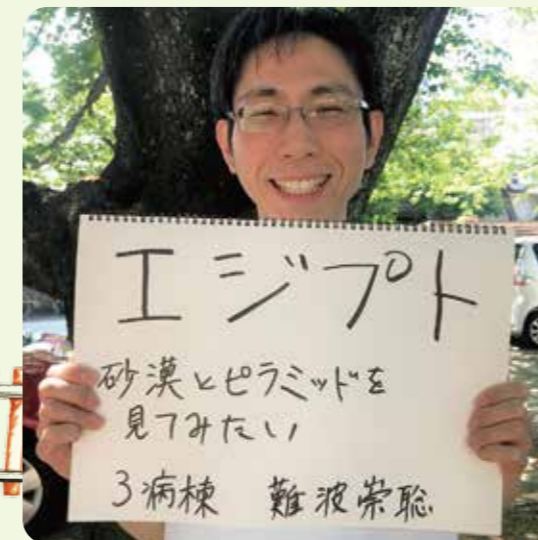 エジプト
砂漠とピラミッドを
見てみたい
3病棟 難波崇聡